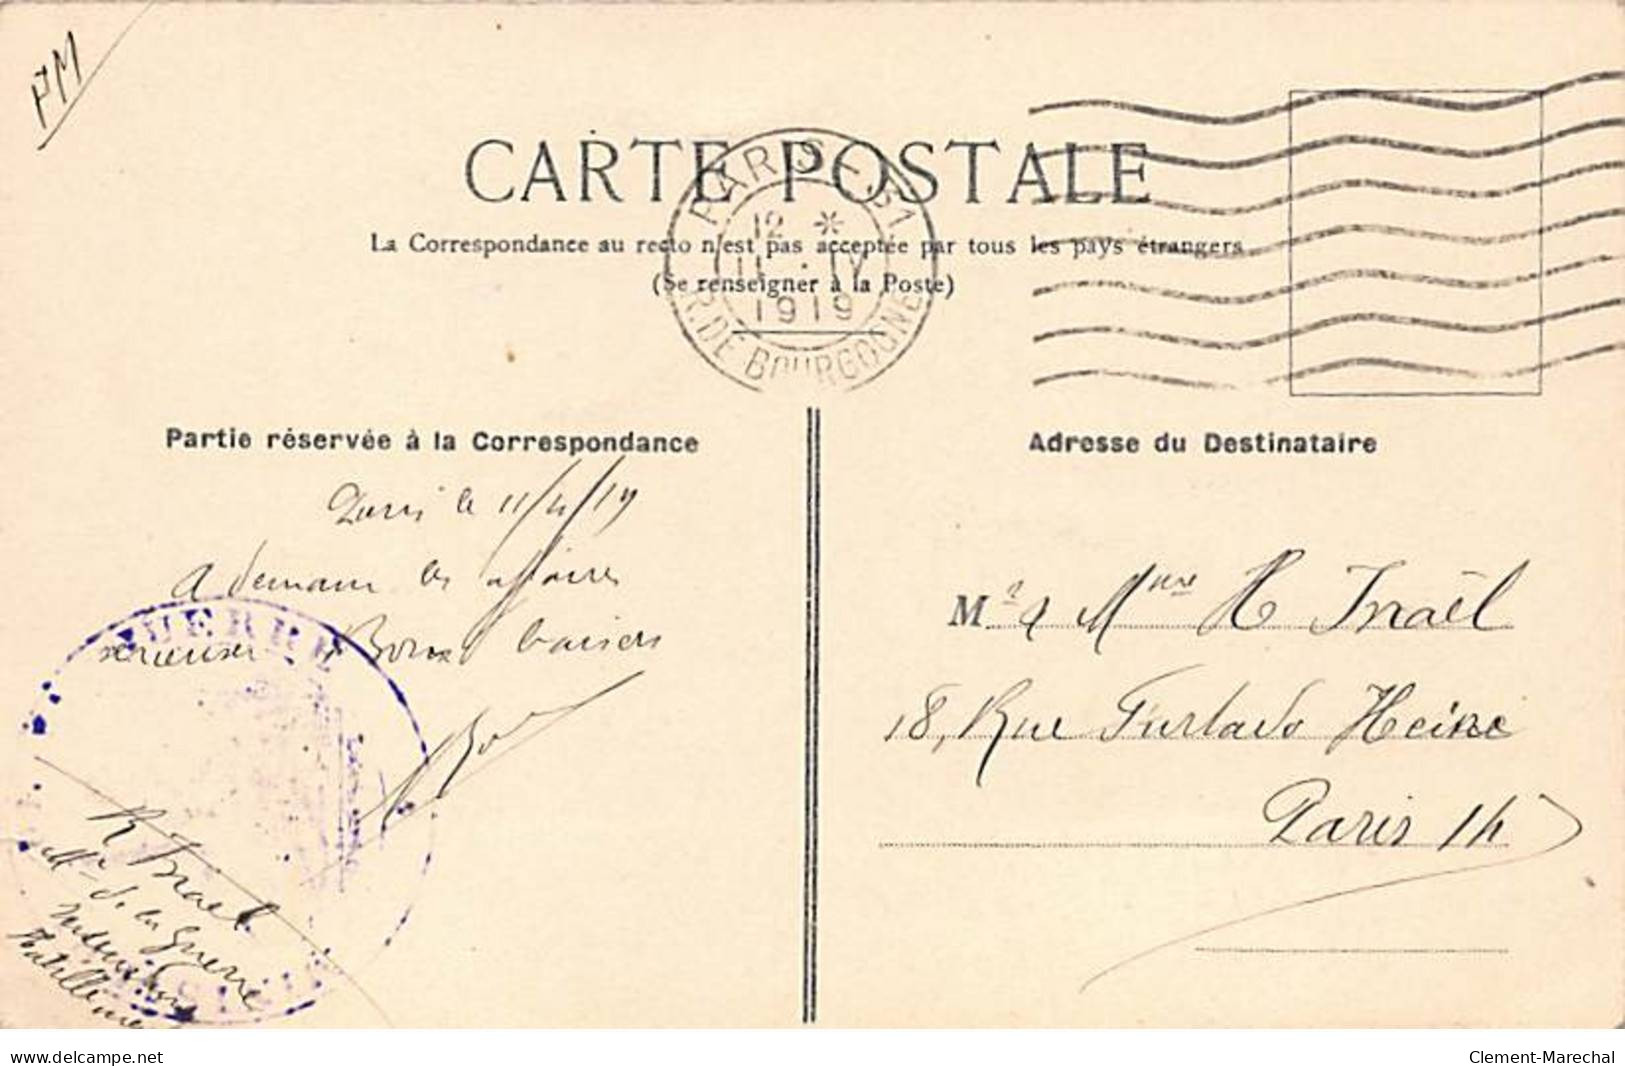 FM
CARTE POSTALE
PARIS - 51
12 *
11 - IV
1919
R. DE BOURGOGNE
La Correspondance au recto n'est pas acceptée par tous les pays étrangers
(Se renseigner à la Poste)
Partie réservée à la Correspondance
Paris le 11/4/19
A demain les affaires
serieuses Bons baisers
GUERRE
R Israel
Mre de la guerre
Adresse du Destinataire
Mr & Mme H Israël
18, Rue Furtado Heine
Paris 14
delcampe.net
Clement-Marechal